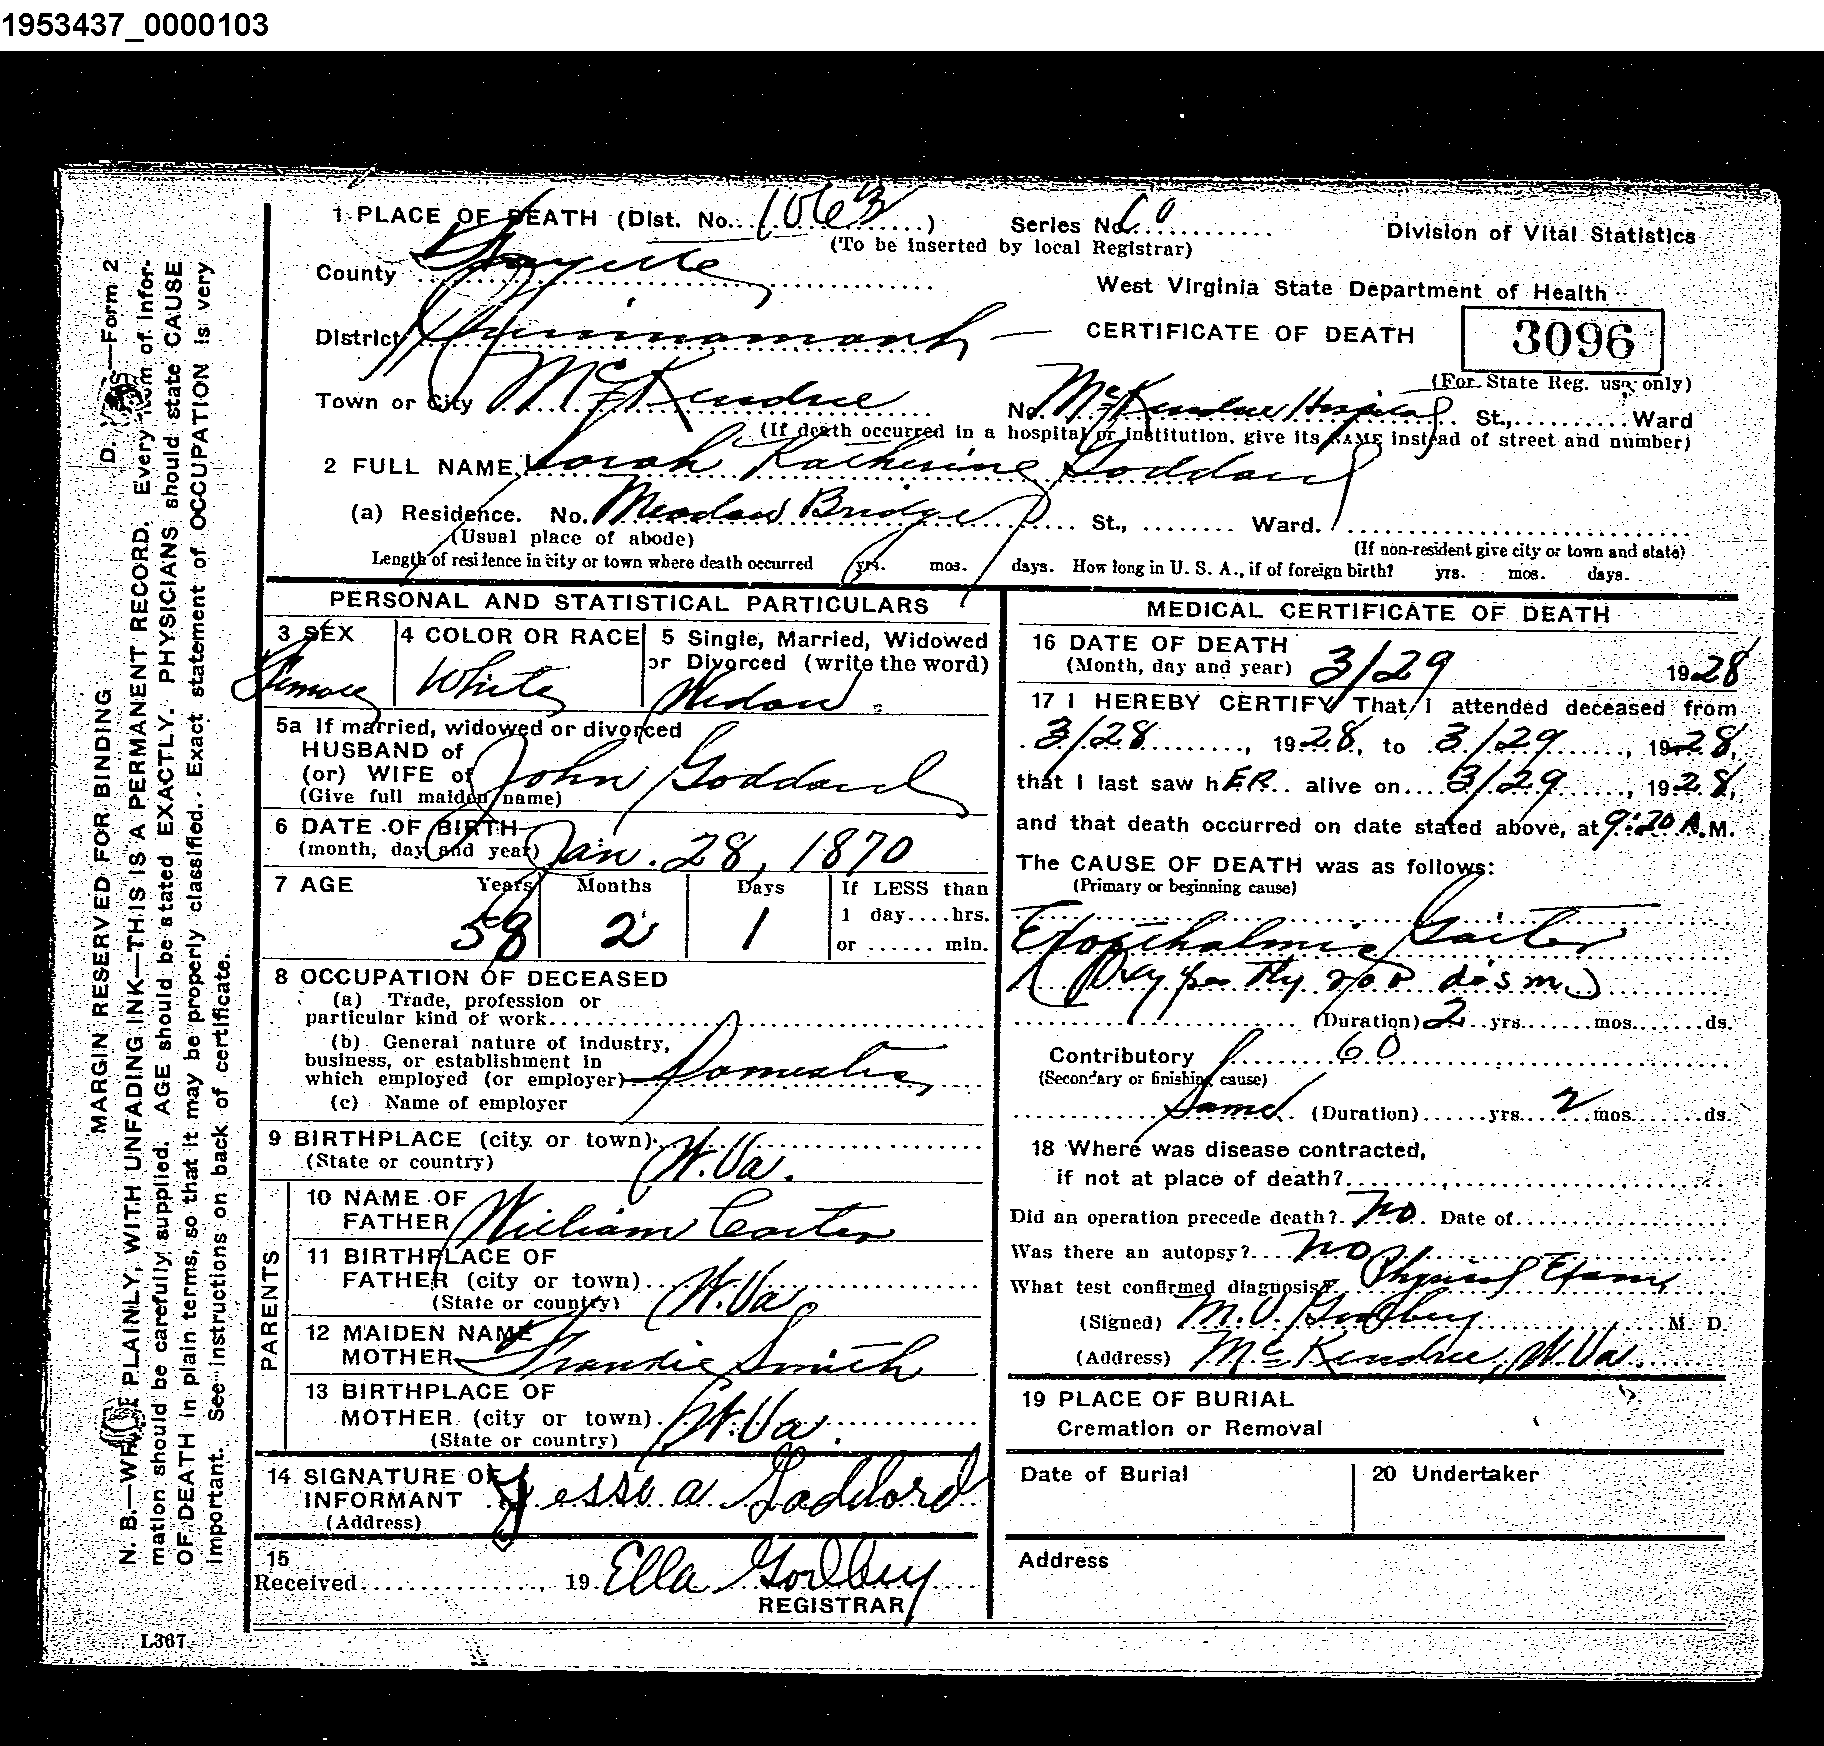 1953437_0000103
1 PLACE OF DEATH (Dist. No. 1063) Series No. 60
(To be inserted by local Registrar)
Division of Vital Statistics
County Fayette
West Virginia State Department of Health
District Quinnamont
CERTIFICATE OF DEATH
3096
(For State Reg. use only)
Town or City McKendree No. McKendree Hospital St., Ward
(If death occurred in a hospital or institution, give its NAME instead of street and number)
2 FULL NAME Sarah Katherine Goddard
(a) Residence. No. Meadow Bridge St., Ward.
(Usual place of abode)
(If non-resident give city or town and state)
Length of residence in city or town where death occurred yrs. mos. days. How long in U. S. A., if of foreign birth? yrs. mos. days.
PERSONAL AND STATISTICAL PARTICULARS
3 SEX
Female
4 COLOR OR RACE
White
5 Single, Married, Widowed
or Divorced (write the word)
Widow
5a If married, widowed or divorced
HUSBAND of
(or) WIFE of John Goddard
(Give full maiden name)
6 DATE OF BIRTH
(month, day and year) Jan. 28, 1870
7 AGE Years Months Days If LESS than
1 day....hrs.
58 2 1 or ...... min.
8 OCCUPATION OF DECEASED
(a) Trade, profession or
particular kind of work
(b) General nature of industry,
business, or establishment in
which employed (or employer) Domestic
(c) Name of employer
9 BIRTHPLACE (city or town)
(State or country) W.Va.
PARENTS
10 NAME OF
FATHER William Carter
11 BIRTHPLACE OF
FATHER (city or town)
(State or country) W.Va
12 MAIDEN NAME
MOTHER Frankie Smith
13 BIRTHPLACE OF
MOTHER (city or town) W.Va.
(State or country)
14 SIGNATURE OF
INFORMANT Jesse a Gaddord
(Address)
15
Received 19 Ella Godbey
REGISTRAR
MEDICAL CERTIFICATE OF DEATH
16 DATE OF DEATH
(Month, day and year) 3/29 1928
17 I HEREBY CERTIFY That I attended deceased from
3/28, 1928, to 3/29, 1928,
that I last saw hER alive on 3/29, 1928,
and that death occurred on date stated above, at 9:20 A.M.
The CAUSE OF DEATH was as follows:
(Primary or beginning cause)
Exopthalmic Goiter
(Hyperthyroodism)
(Duration) 2 yrs. mos. ds.
Contributory 60
(Secondary or finishing cause)
Same (Duration) yrs. 2 mos. ds.
18 Where was disease contracted,
if not at place of death?
Did an operation precede death? No. Date of
Was there an autopsy? No
What test confirmed diagnosis? Physical Exam,
(Signed) M.V. Godbey M. D.
(Address) McKendree, W.Va.
19 PLACE OF BURIAL
Cremation or Removal
Date of Burial
20 Undertaker
Address
D. —Form 2
MARGIN RESERVED FOR BINDING
N. B.—WRITE PLAINLY, WITH UNFADING INK—THIS IS A PERMANENT RECORD. Every item of infor-
mation should be carefully supplied. AGE should be stated EXACTLY. PHYSICIANS should state CAUSE
OF DEATH in plain terms, so that it may be properly classified. Exact statement of OCCUPATION is very
important. See instructions on back of certificate.
L367